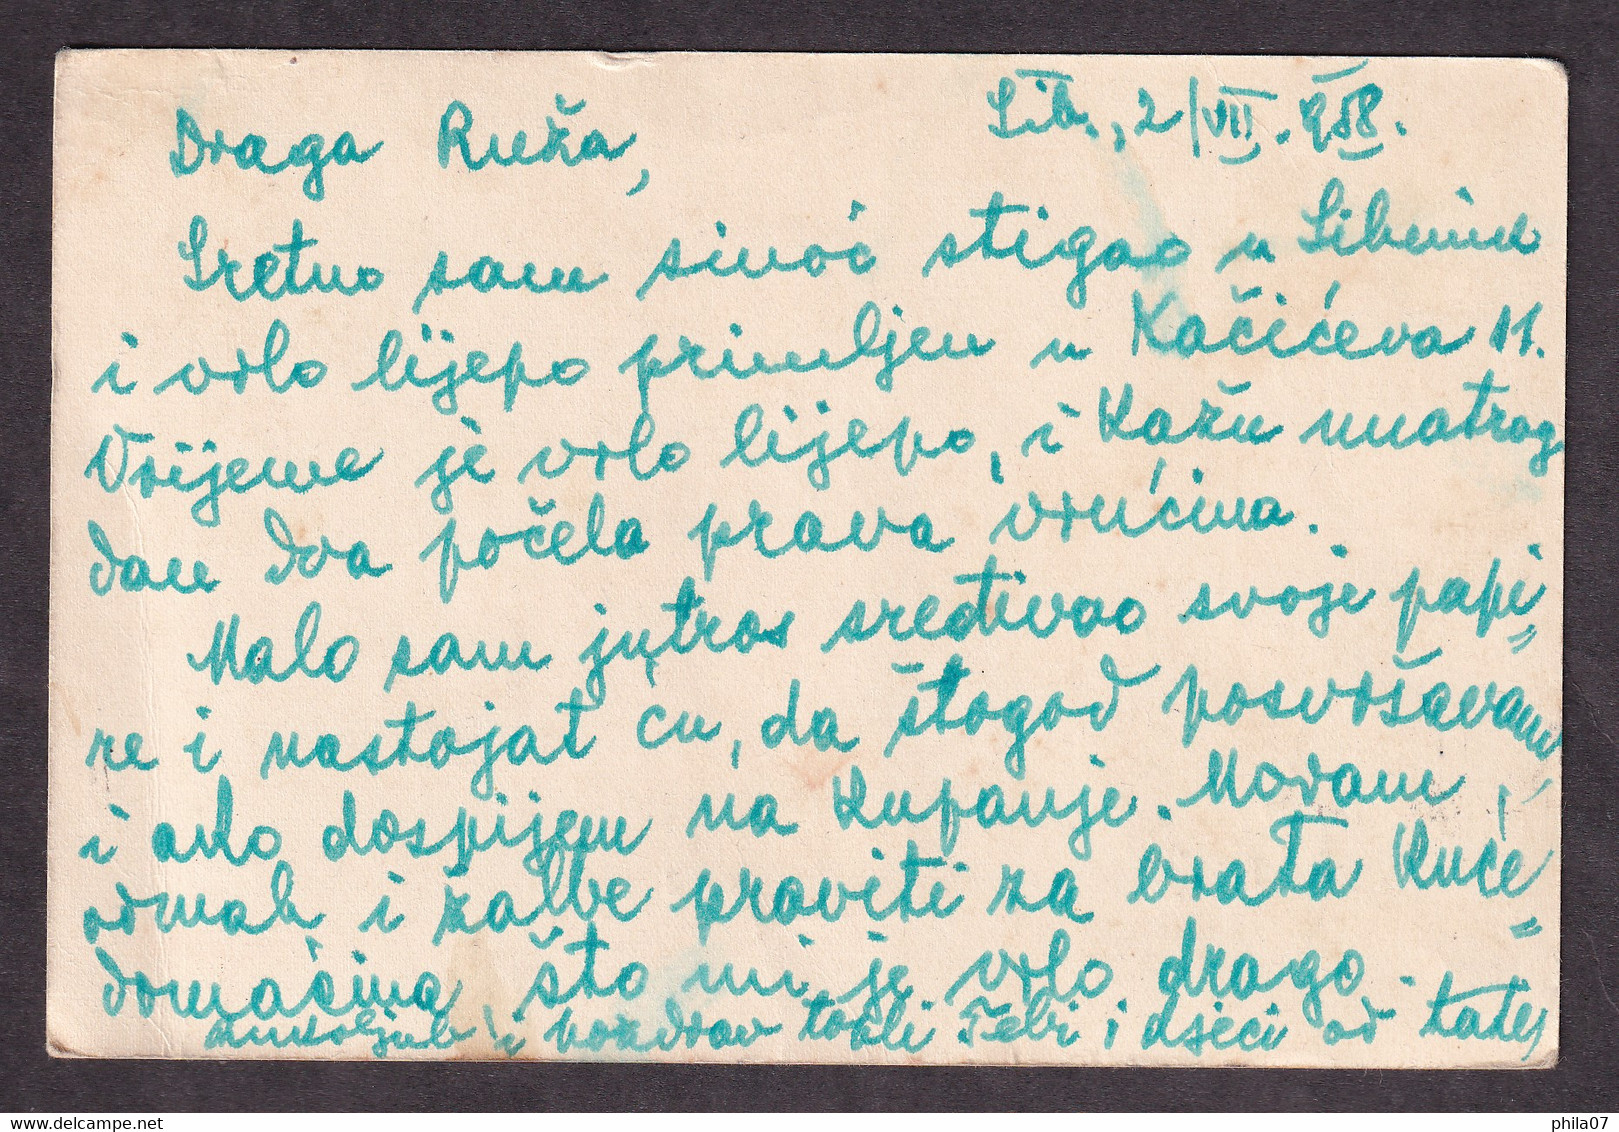 Šib., 2/VII. 958.
Draga Ruža,
Sretno sam sinoć stigao u Šibenik
i vrlo lijepo primljen u Kačićeva 11.
Vrijeme je vrlo lijepo, i kažu unatrag
dan dva počela prava vrućina.
Malo sam jutros sređivao svoje papi=
re i nastojat ću, da štogod posvršavam,
i ako dospijem na kupanje. Moram,
odmah i žalbe praviti za brata kuće=
domaćina, što mi je vrlo drago.
rukoljub i pozdrav tebi i djeci od tate
delcampe.net
phila07